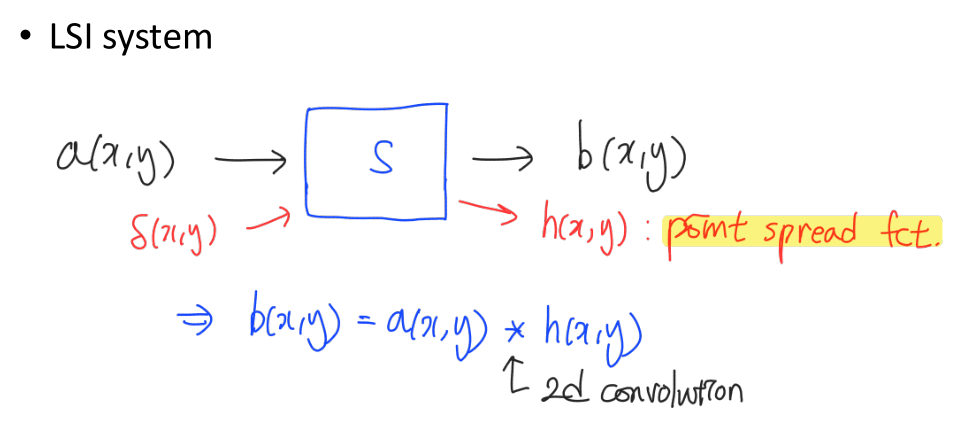 • LSI system
a(x,y) → S → b(x,y)
δ(x,y) → → h(x,y) : point spread fct.
⇒ b(x,y) = a(x,y) * h(x,y)
↑ 2d convolution